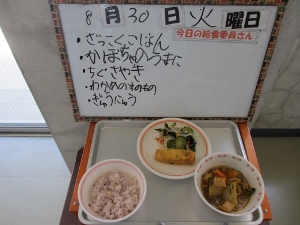 8月30日火曜日
今日の給食委員さん
・ざっこくごはん
・かぼちゃのうまに
・ちくさやき
・わかめのすのもの
・ぎゅうにゅう